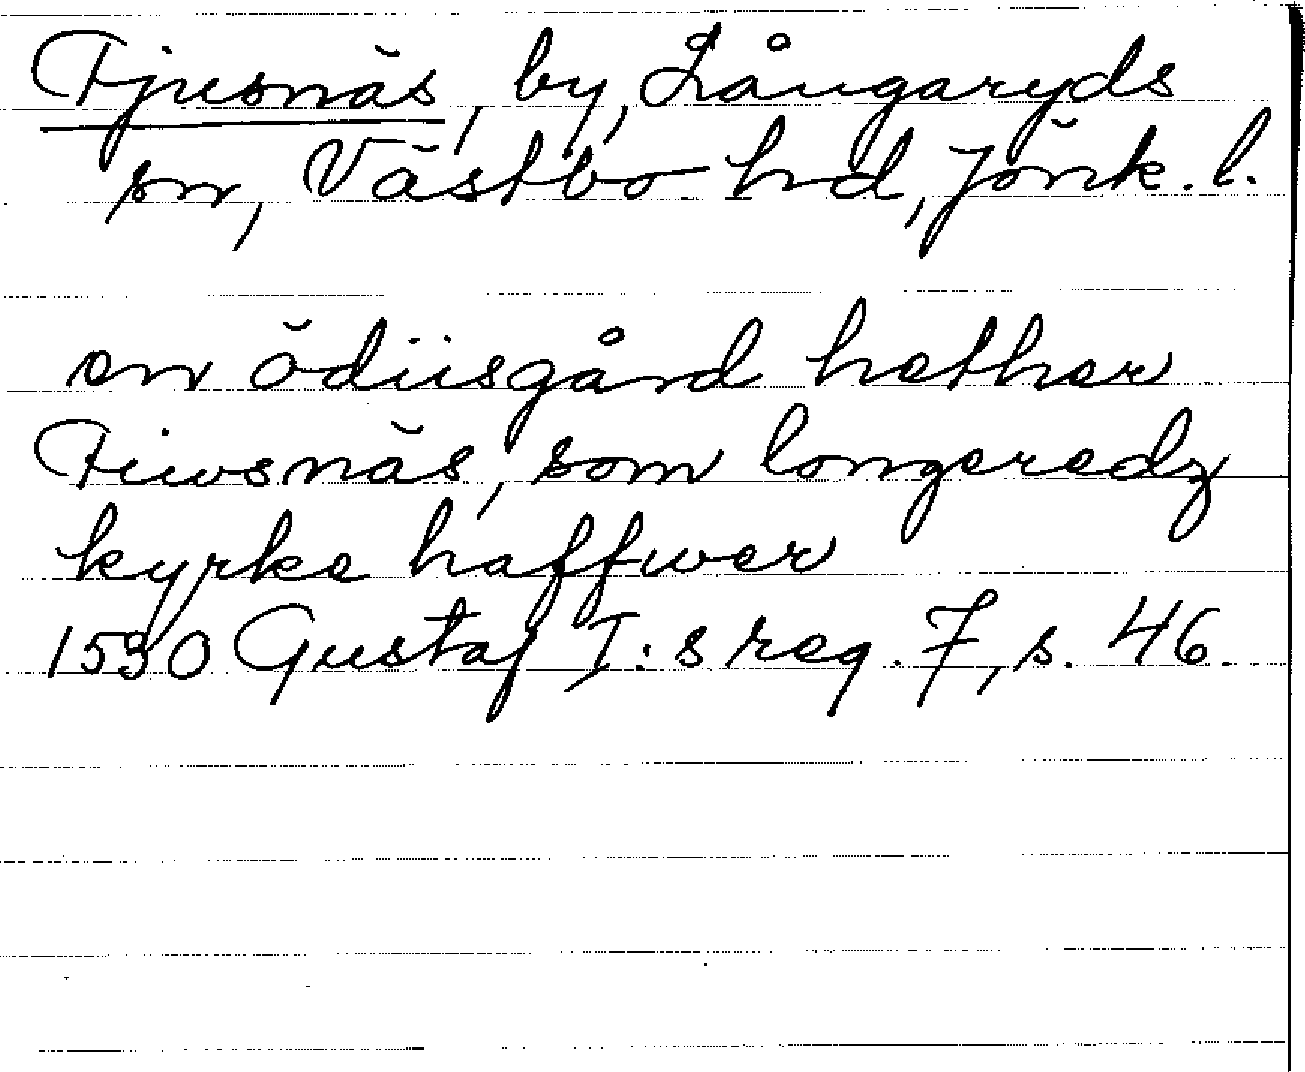 Tjusnäs, by, Långaryds
sn, Västbo hd, Jönk. l.
en ödiisgård hether
Tiwsnäs, som longeredz
kyrke haffwer
1530 Gustaf I:s reg. 7, s. 46.